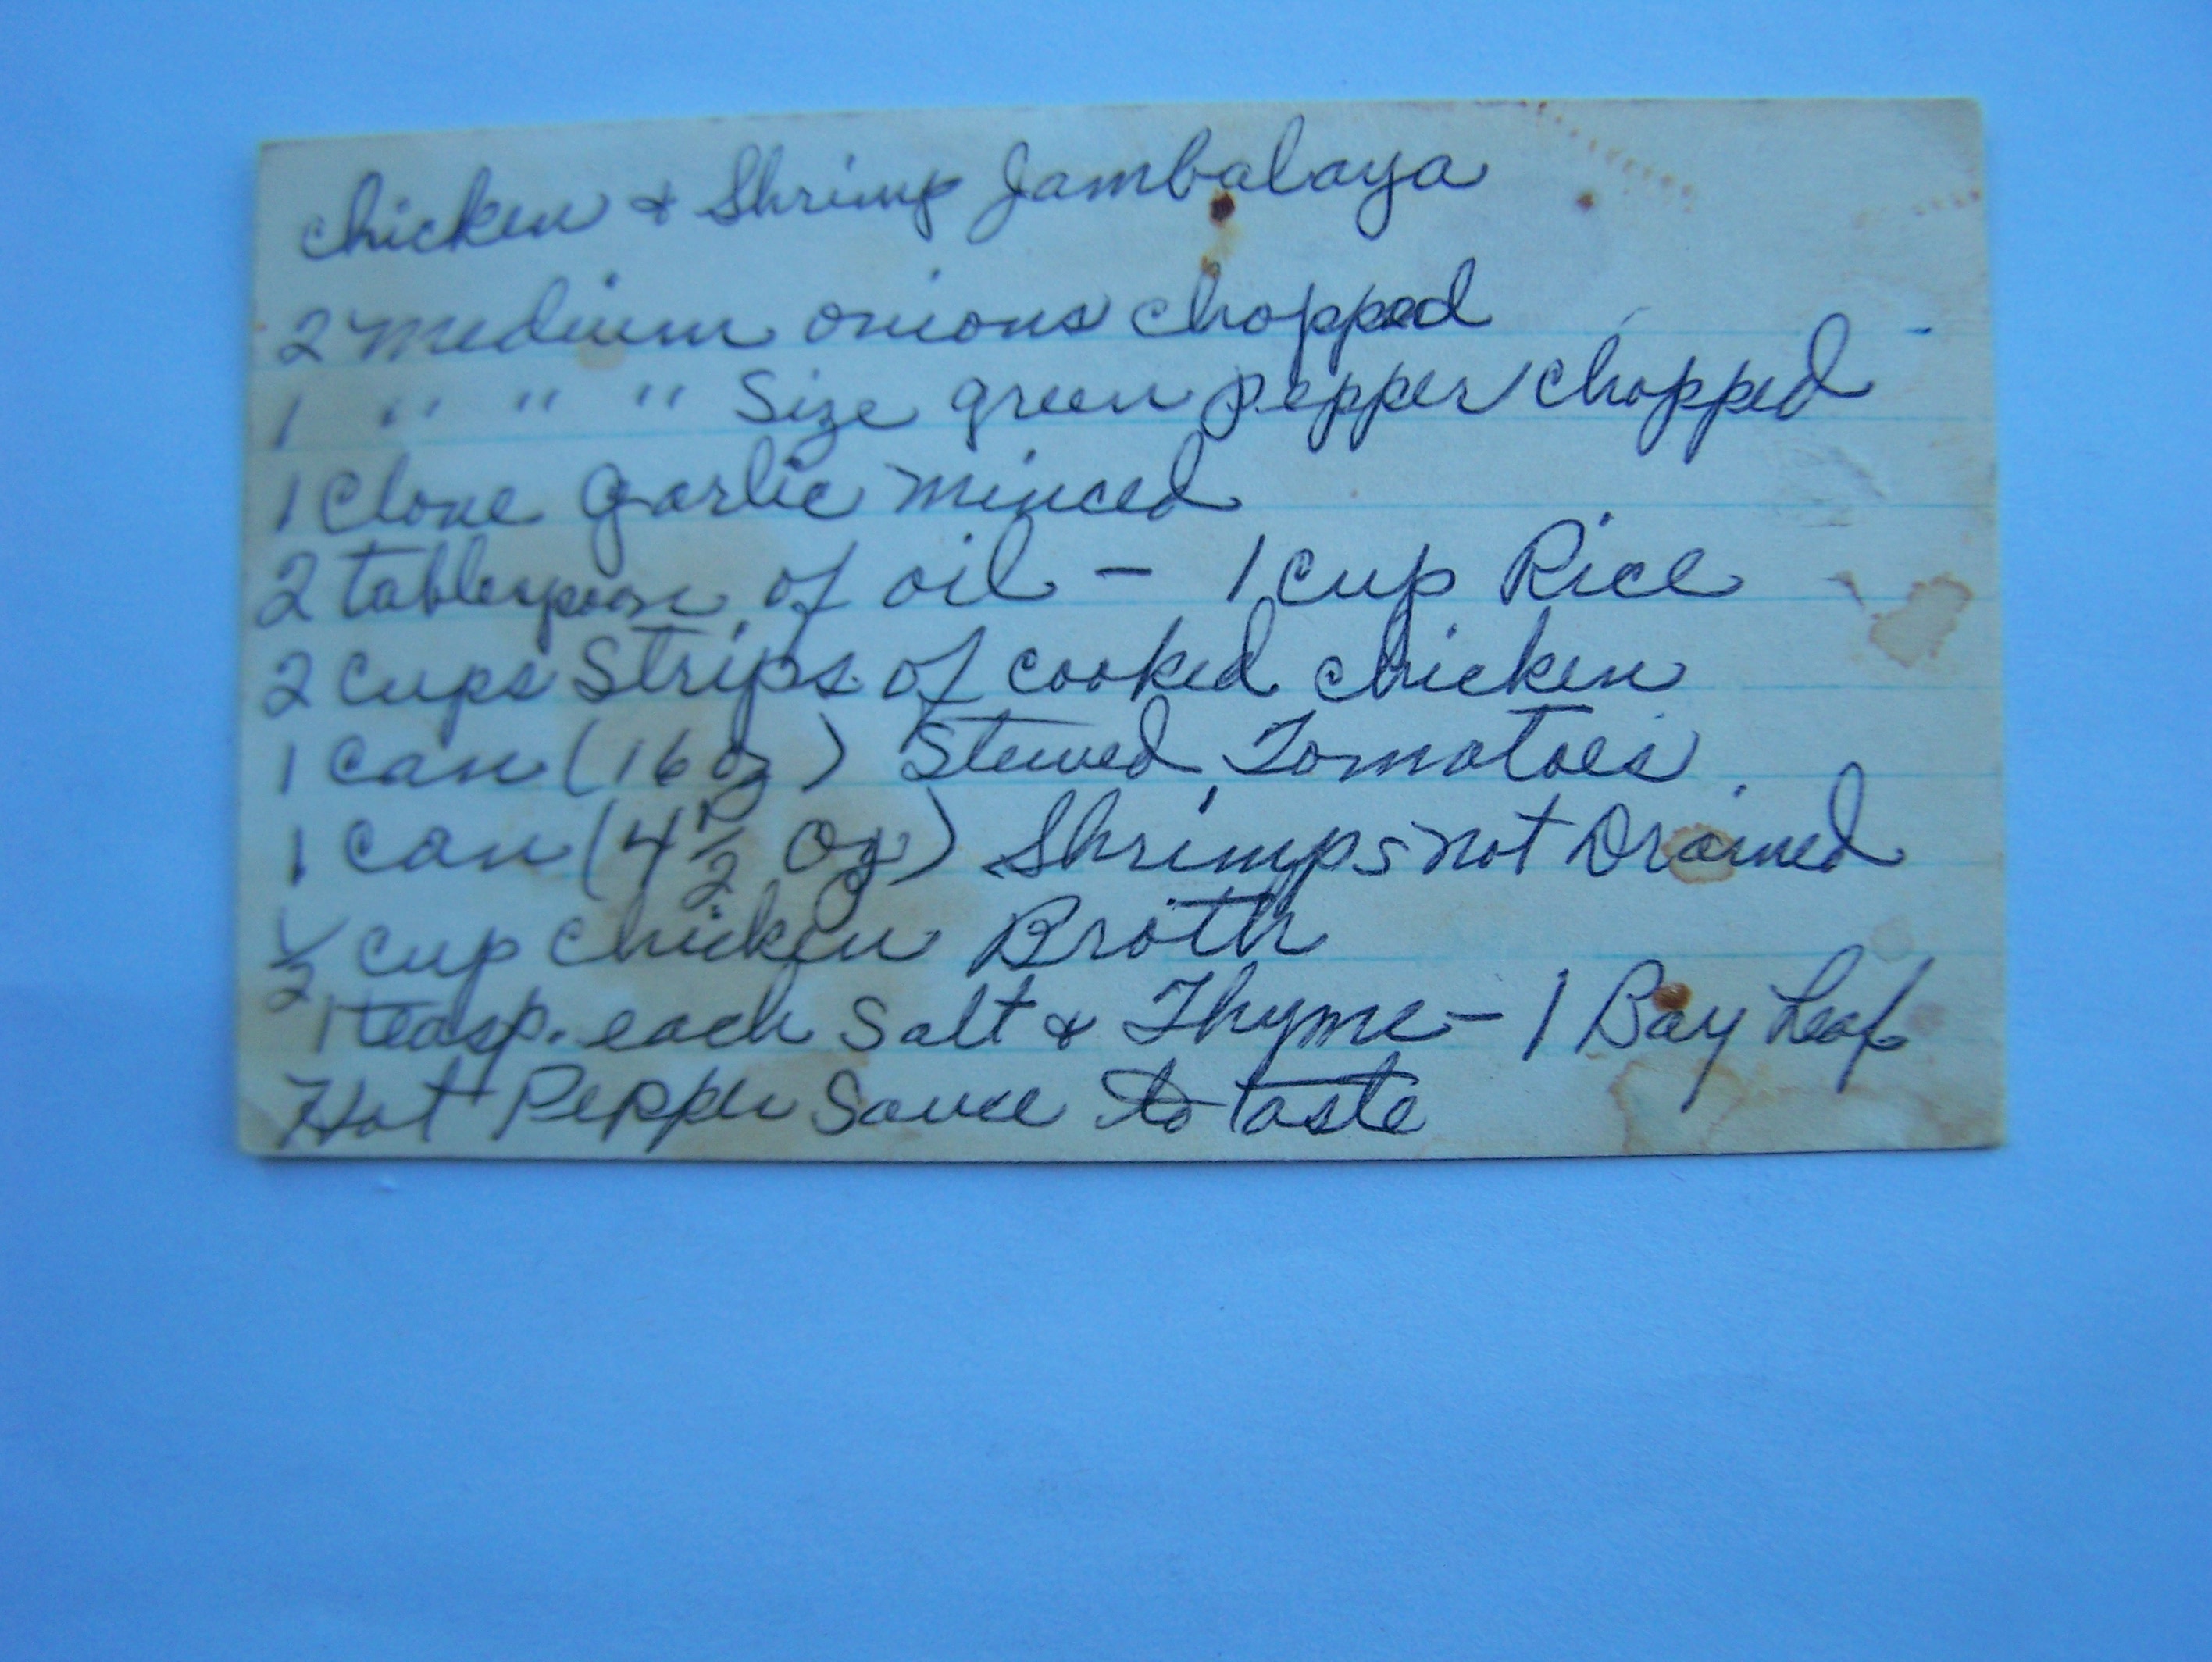 Chicken & Shrimp Jambalaya
2 medium onions chopped
1 " " " Size green pepper chopped
1 clove garlic minced
2 tablespoon of oil – 1 cup Rice
2 cups Strips of cooked chicken
1 can (16 oz) Stewed Tomatoes
1 can (4 1/2 oz) Shrimps not Drained
1/2 cup chicken Broth
1 teasp. each Salt & Thyme – 1 Bay Leaf
Hot Pepper Sauce to taste